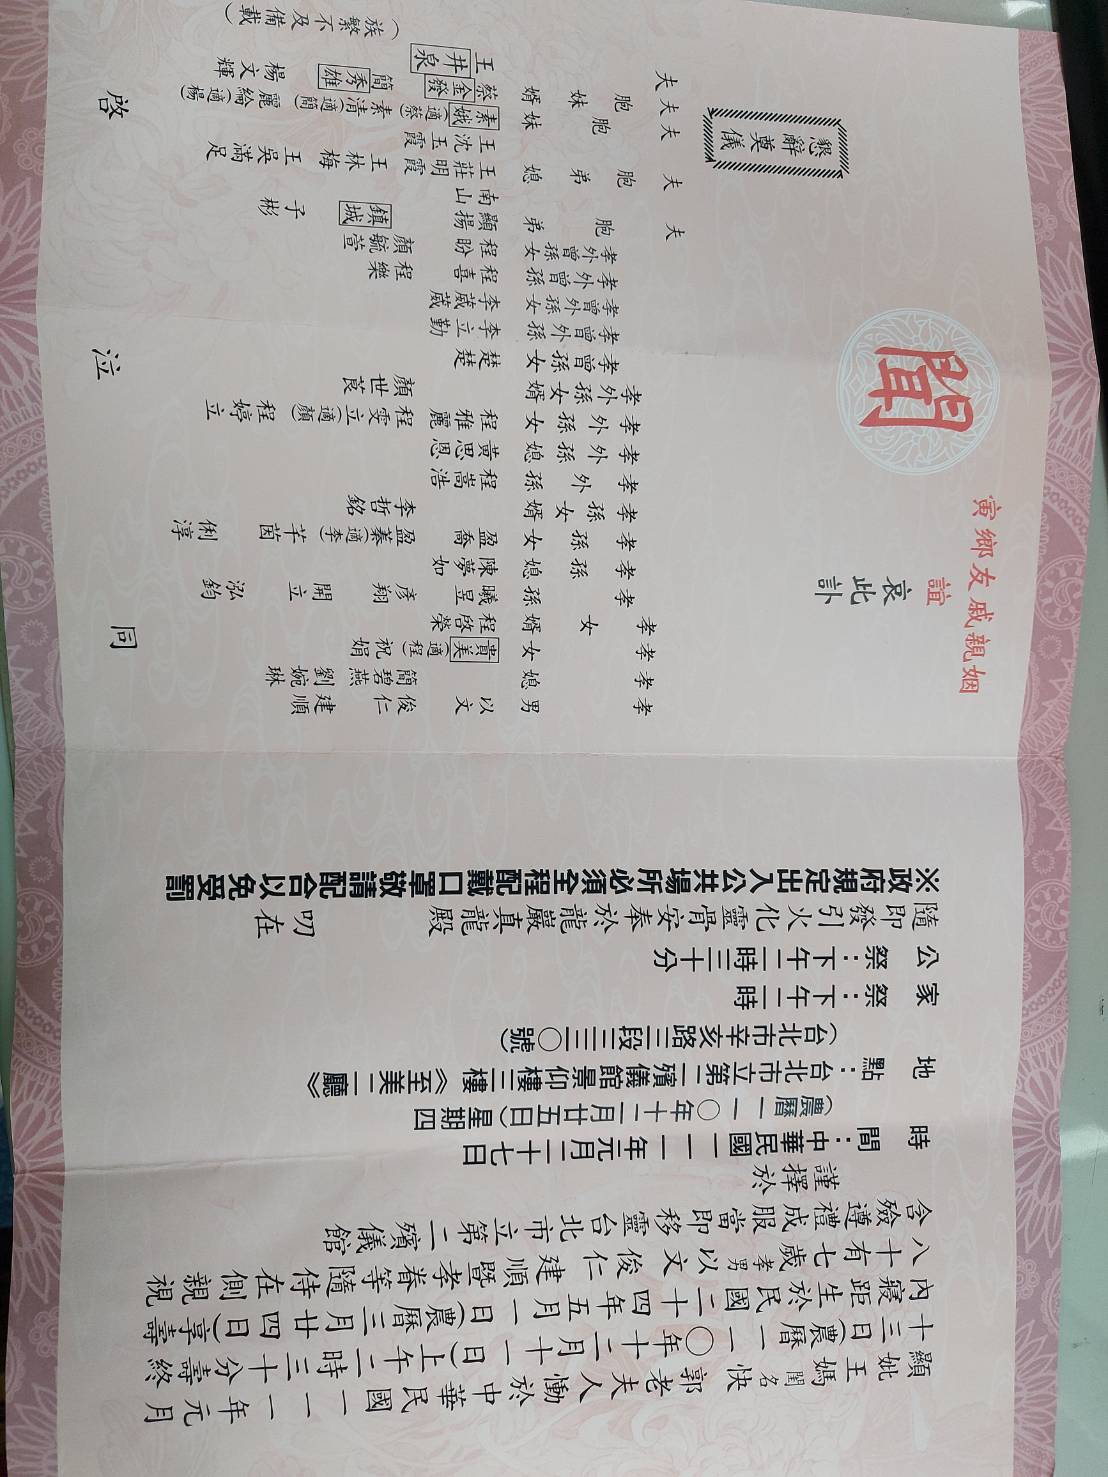 顯妣王媽閨名快郭老夫人慟於中華民國一一一年元月
十三日(農曆一一〇年十二月十一日)上午二時三十分壽終
內寢距生於民國二十四年五月一日(農曆三月廿四日)享壽
八十有七歲孝男以文俊仁建順暨孝眷等隨侍在側親視
含殮遵禮成服當即移靈台北市立第二殯儀館
謹擇於
時間:中華民國一一一年元月二十七日
(農曆一一〇年十二月廿五日)星期四
地點:台北市立第二殯儀館仰景樓三樓《至美一廳》
(台北市辛亥路三段三三〇號)
家祭:下午二時
公祭:下午二時三十分
隨即發引火化靈骨安奉於龍巖真龍殿
叨在
※政府規定出入公共場所必須全程配戴口罩敬請配合以免受罰
姻親戚友鄉寅
誼
哀此訃
聞
懇辭奠儀
孝男 以文 俊仁 建順
孝媳 簡碧燕 劉婉琳
孝女 貴美 祝娟(適程)
孝女婿 程啓榮
孝孫 曦昱 彥翔 開立 泓鈞
孝孫媳 陳夢如
孝孫女 盈喬 盈蓁(適李) 芊茵 俐淳
孝孫女婿 李哲銘
孝外孫 程嵩浩
孝外孫媳 黃思恩
孝外孫女 程雅麗 程立雯(適顏) 程立婷
孝外孫女婿 顏世莨
孝曾孫女 楚楚
孝曾外孫 李立勤
孝曾外孫女 李葳葳
孝外曾孫 程喜 程樂
孝外曾孫女 程盼 顏毓萱
夫胞弟 南山 顯揚 鎮城 子彬
夫胞弟媳 王莊明霞 王林梅 王吳滿足
夫胞妹 王沈玉霞 素娥(適蔡) 素清(適簡) 麗綸(適楊)
夫胞妹婿 王井泉 蔡金發 簡秀雄 楊文輝
(族繁不及備載)
同
泣
啓